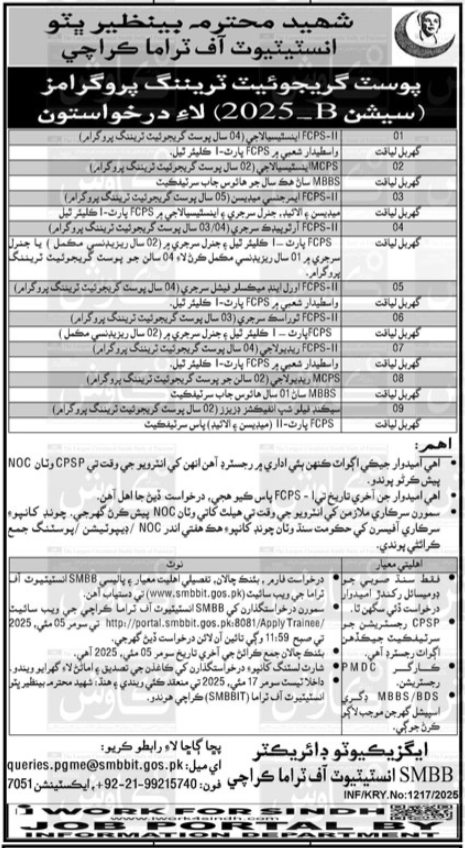 شهيد محترمه بينظير ڀٽو
انسٽيٽيوٽ آف ٽراما ڪراچي
پوسٽ گريجوئيٽ ٽريننگ پروگرامز
(سيشن 2025_B) لاءِ درخواستون
01 FCPS-II اينستيسيالاجي (04 سال پوسٽ گريجوئيٽ ٽريننگ پروگرام)
گهربل لياقت واسطيدار شعبي ۾ FCPS پارٽ-I ڪليئر ٿيل.
02 MCPS اينستيسيالاجي (02 سال پوسٽ گريجوئيٽ ٽريننگ پروگرام)
گهربل لياقت MBBS سان هڪ سال جو هائوس جاب سرٽيفڪيٽ
03 FCPS-II ايمرجنسي ميڊيسن (05 سال پوسٽ گريجوئيٽ ٽريننگ پروگرام)
گهربل لياقت ميڊيسن ۽ الائيڊ، جنرل سرجري ۽ اينستيسيالاجي ۾ FCPS پارٽ-I ڪليئر ٿيل
04 FCPS-II آرٿوپيڊڪ سرجري (03/04 سال پوسٽ گريجوئيٽ ٽريننگ پروگرام)
گهربل لياقت FCPS پارٽ – I ڪليئر ٿيل ۽ جنرل سرجري ۾ (02 سال ريزيڊنسي مڪمل) يا جنرل
سرجري ۾ 01 سال ريزيڊنسي مڪمل ڪرڻ لاءِ 04 سالن جو پوسٽ گريجوئيٽ ٽريننگ
پروگرام.
05 FCPS-II اورل اينڊ ميڪسلو فيشل سرجري (04 سال پوسٽ گريجوئيٽ ٽريننگ پروگرام)
گهربل لياقت واسطيدار شعبي ۾ FCPS پارٽ-I ڪليئر ٿيل.
06 FCPS-II ٿوراسڪ سرجري (03 سال پوسٽ گريجوئيٽ ٽريننگ پروگرام)
گهربل لياقت FCPS پارٽ – I ڪليئر ٿيل ۽ جنرل سرجري ۾ (02 سال ريزيڊنسي مڪمل)
07 FCPS-II ريڊيولاجي (04 سال پوسٽ گريجوئيٽ ٽريننگ پروگرام)
گهربل لياقت واسطيدار شعبي ۾ FCPS پارٽ-I ڪليئر ٿيل.
08 MCPS ريڊيولاجي (02 سالن جو پوسٽ گريجوئيٽ ٽريننگ پروگرام)
گهربل لياقت MBBS سان 01 سال هائوس جاب سرٽيفڪيٽ
09 سيڪنڊ فيلو شپ انفيڪشز ڊزيزز (02 سال پوسٽ گريجوئيٽ ٽريننگ پروگرام)
گهربل لياقت FCPS پارٽ-II (ميڊيسن ۽ الائيڊ) پاس سرٽيفڪيٽ
اهم:
اهي اميدوار جيڪي اڳواٽ ڪنهن ٻئي اداري ۾ رجسٽرڊ آهن انهن کي انٽرويو جي وقت تي CPSP وٽان NOC
پيش ڪرڻو پوندو.
اهي اميدوار جن آخري تاريخ تي FCPS - I پاس ڪيو هجي، درخواست ڏيڻ جا اهل آهن.
سمورن سرڪاري ملازمن کي انٽرويو جي وقت تي هيلٿ کاتي وٽان NOC پيش ڪرڻ گهرجي، چونڊ کانپوءِ
سرڪاري آفيسرن کي حڪومت سنڌ وٽان چونڊ کانپوءِ هڪ هفتي اندر NOC / ڊيپوٽيشن / پوسٽنگ جمع
ڪرائڻي پوندي.
اهليتي معيار
فقط سنڌ صوبي جو
ڊوميسائل رکندڙ اميدوار
درخواست ڏئي سگهن ٿا.
CPSP رجسٽريشن جو
سرٽيفڪيٽ جيڪڏهن
اڳواٽ رجسٽرڊ آهن.
ڪارگر PMDC
رجسٽريشن.
MBBS/BDS ڊگري
اسپيشل گهرجن موجب لاڳو
ڪرڻ جوڳي.
نوٽ
درخواست فارم، بئنڪ چالان، تفصيلي اهليت معيار ۽ پاليسي SMBB انسٽيٽيوٽ آف
ٽراما جي ويب سائيٽ (www.smbbit.gov.pk) تي دستياب آهن.
سمورن درخواستگذارن کي SMBB انسٽيٽيوٽ آف ٽراما ڪراچي جي ويب سائيٽ
http://portal.smbbit.gov.pk:8081/Apply Trainee/ تي سومر 05 مئي، 2025
تي صبح 11:59 وڳي تائين آن لائن درخواست ڏيڻ گهرجي.
بئنڪ چالان جمع ڪرائڻ جي آخري تاريخ سومر 05 مئي، 2025 آهي.
شارٽ لسٽنگ کانپوءِ درخواستگذارن کي ڪاغذن جي تصديق ۾ امائڻ لاءِ گهرايو ويندو.
داخلا ٽيسٽ سومر 17 مئي، 2025 تي منعقد ڪئي ويندي ۽ هنڌ: شهيد محترمه بينظير ڀٽو
انسٽيٽيوٽ آف ٽراما (SMBBIT) ڪراچي هوندو.
ايگزيڪيوٽو ڊائريڪٽر
SMBB انسٽيٽيوٽ آف ٽراما ڪراچي
INF/KRY.No:1217/2025
پڇا ڳاڇا لاءِ رابطو ڪريو:
اي ميل: queries.pgme@smbbit.gov.pk
فون: +92-21-99215740، ايڪسٽينشن 7051
I WORK FOR SINDH
https://www.iwork4sindh.com
JOB PORTAL BY
INFORMATION DEPARTMENT